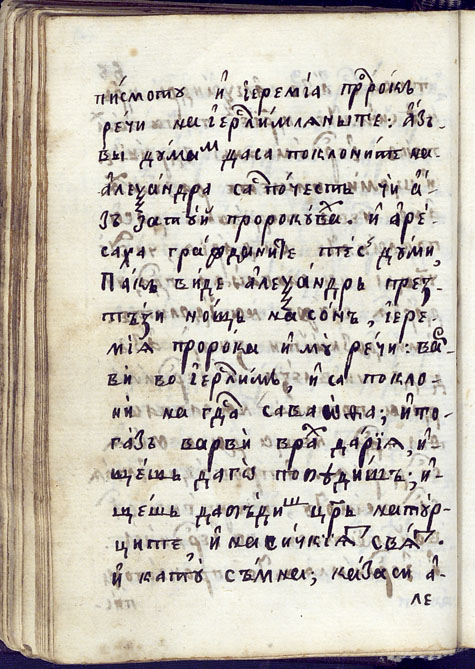 писмоту и іеремїа пррокъ
речи на іерⷭ҇лимлѧныте: азъ
вы думамъ даса поклоните на
алеѯандра са почесть чи а҆-
зъ затуй пророкува. и аре-
саха гражданите тес думи,
Пакъ виде алеѯандрь през
тъзи нощь на сонъ, іере-
мїѧ пророка и му речи: ва-
ви во іерⷭ҇лимъ, и са покло-
ни на гдⷭ҇а саваѡѳа; и по-
газъ варви врⷯа дарїѧ, и
щешь даго погудишъ; и-
щешь дабъдишъ цръ натур-
ците и насичкїѧ свѧ.
и като съмна, казаси а-
ле